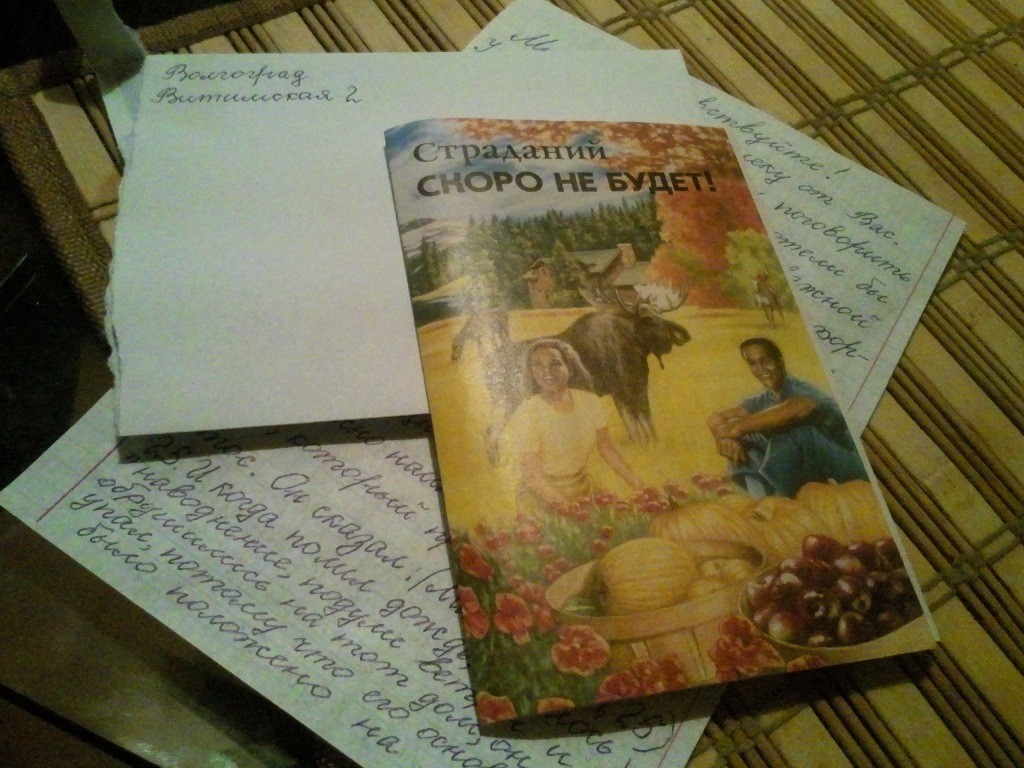 Волгоград
Витимская 2
Страданий
СКОРО НЕ БУДЕТ!
у М.
вствуйте!
еку от Вас.
поговорить
тели бы
жной
хор-
который
Он сказал: (М
25. И когда полил дождь
наводнение, подули вет
обрушились на тот дом, он
упал, потому что его осно
было положено на
25)